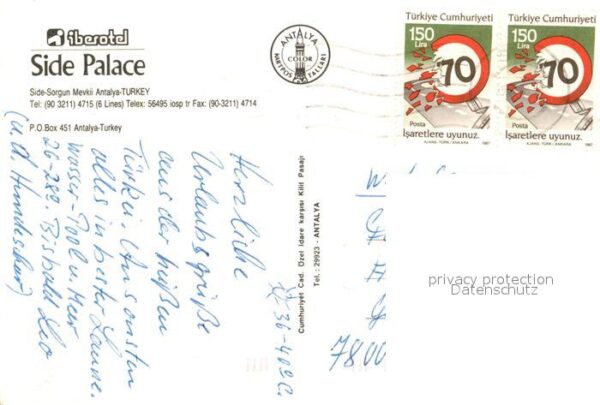 iberotel
Side Palace
Side-Sorgun Mevkii Antalya-TURKEY
Tel: (90 3211) 4715 (6 Lines) Telex: 56495 iosp tr Fax: (90-3211) 4714
P.O.Box 451 Antalya-Turkey
ANTALYA
COLOR
KARTPOSTALLARI
Türkiye Cumhuriyeti
150
Lira
70
Posta
İşaretlere uyunuz.
AJANS-TÜRK / ANKARA 1987
Türkiye Cumhuriyeti
150
Lira
70
Posta
İşaretlere uyunuz.
AJANS-TÜRK / ANKARA 1987
Herzliche
Urlaubsgrüße
aus der heißen
Türkei. (Ansonsten
alles in bester Laune.
Wasser-Pool u. Meer
26-28º. Bis bald Leo
(u. d.
36-40º C.
Cumhuriyet Cad. Özel İdare karşısı Kilit Pasajı
Tel.: 29923 - ANTALYA
7800
privacy protection
Datenschutz